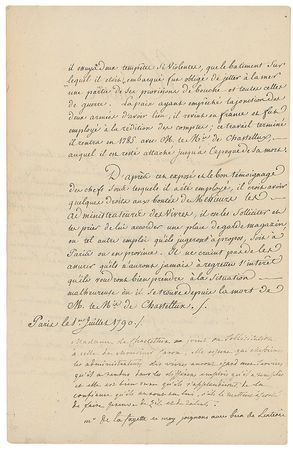 il essuya deux tempêtes si Violentes, que le batiment sur
lequel il etoit embarqué fut obligé de jetter à la mer
une partie de ses provisions de bouche et toutes celles
de guerre. La paix ayant empêché la jonction des
deux armées d'avoir lieu, il revint en france et fut
employé à la redition des comptes; ce travail terminé
il rentra en 1785 avec M. le Mis. de Chastellux
auquel il est resté attaché jusqu'à l'epoque de sa mort.
D'après cet exposé et le bon témoignage
des chefs sous lesquels il a été employé, il croit avoir
quelque droits aux bontés de Messieurs les
Administrateurs des Vivres, il ose les solliciter et
les prier de lui accorder une place de garde magazin,
ou tel autre emploi qu'ils jugeront à propos, soit à
Paris ou en province. Il ne craint pas de les
assurer qu'ils n'auront jamais à regretter l'intérêt
qu'ils voudront bien prendre à la situation
malheureuse où il se trouve depuis la mort de
M. le Mis. de Chastellux.
Paris le 1er Juillet 1790.
Madame de Chastellux joint sa Sollicitation
à celle de Monsieur
les administrateurs des vivres auront
qu'il a rendus dans les différens emplois qu'il a
et elle est bien sure qu'ils s'applaudiront de la
confiance qu'ils auront
de faire preuve de
mr de la fayette se